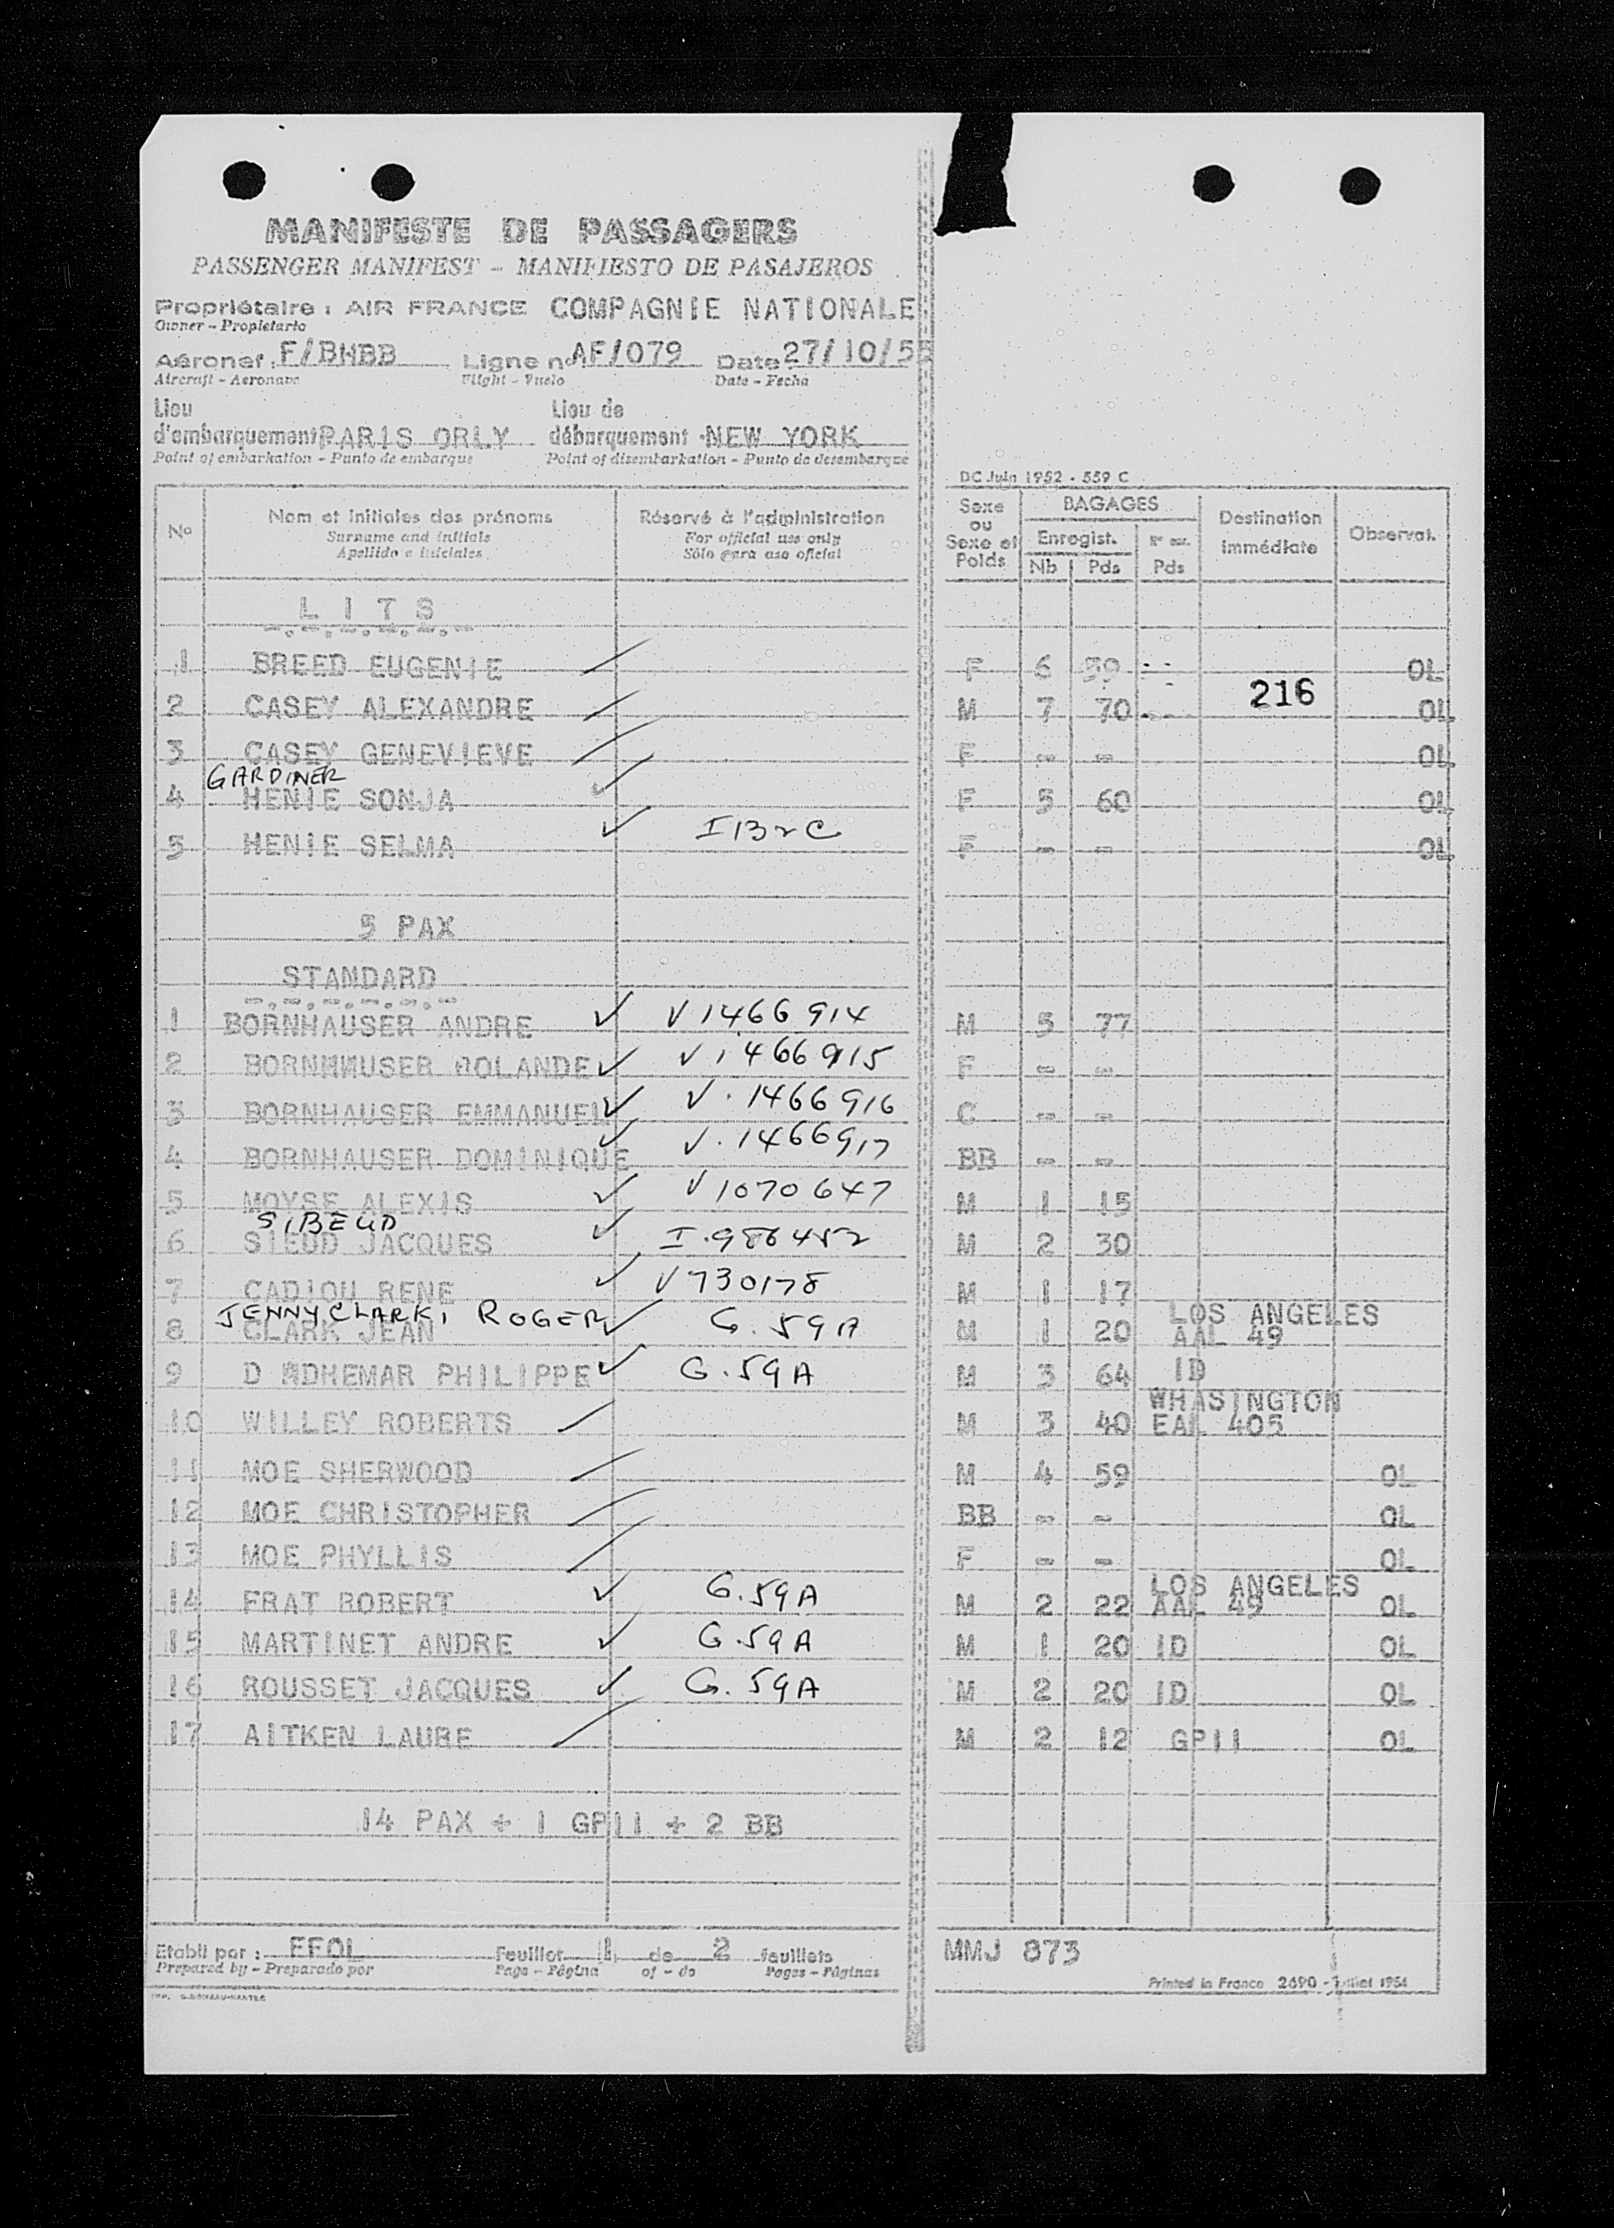 MANIFESTE DE PASSAGERS
PASSENGER MANIFEST - MANIFIESTO DE PASAJEROS
Propriétaire : AIR FRANCE COMPAGNIE NATIONALE
Owner - Propietario
Aéronef : F/BHBB Ligne no AF/079 Date 27/10/55
Aircraft - Aeronave Flight - Vuelo Date - Fecha
Lieu Lieu de
d'embarquement PARIS ORLY débarquement NEW YORK
Point of embarkation - Punto de embarque Point of disembarkation - Punto de desembarque
DC Juin 1952 - 559 C
No Nom et initiales des prénoms Réservé à l'administration Sexe ou Sexe et Poids BAGAGES Destination immédiate Observat.
Surname and initials For official use only Enregist.
Apellido e iniciales Sólo para uso oficial Nb Pds Pds
L I T S
1 BREED EUGENIE F 6 59 -- OL
216
2 CASEY ALEXANDRE M 7 70 -- OL
3 CASEY GENEVIEVE F - - OL
GARDINER
4 HENIE SONJA F 5 60 OL
5 HENIE SELMA ✓ I 132 C F - - OL
5 PAX
STANDARD
1 BORNHAUSER ANDRE ✓ V 1466 914 M 5 77
2 BORNHAUSER ROLANDE ✓ V 1466 915 F - -
3 BORNHAUSER EMMANUEL ✓ V. 1466 916 C - -
4 BORNHAUSER DOMINIQUE ✓ V. 1466917 BB - -
5 MOYSE ALEXIS ✓ V 1070647 M 1 15
SIBEUD
6 SIEUD JACQUES ✓ I. 986452 M 2 30
7 CADIOU RENE ✓ V 730178 M 1 17
JENNY CLARK, ROGER LOS ANGELES
8 CLARK JEAN ✓ G. 59A M 1 20 AAL 49
9 D ADHEMAR PHILIPPE ✓ G. 59A M 3 64 ID
WHASINGTON
10 WILLEY ROBERTS M 3 40 EAL 405
11 MOE SHERWOOD M 4 59 OL
12 MOE CHRISTOPHER BB - - OL
13 MOE PHYLLIS F - - OL
LOS ANGELES
14 FRAT ROBERT ✓ G. 59A M 2 22 AAL 49 OL
15 MARTINET ANDRE ✓ G. 59A M 1 20 ID OL
16 ROUSSET JACQUES ✓ G. 59A M 2 20 ID OL
17 AITKEN LAURE M 2 12 GP11 OL
14 PAX + 1 GP11 + 2 BB
Etabli par : FFOL Feuillet 1 de 2 feuillets MMJ 873
Prepared by - Preparado por Page - Página of - de Pages - Páginas
Printed in France 2690 - Juillet 1954